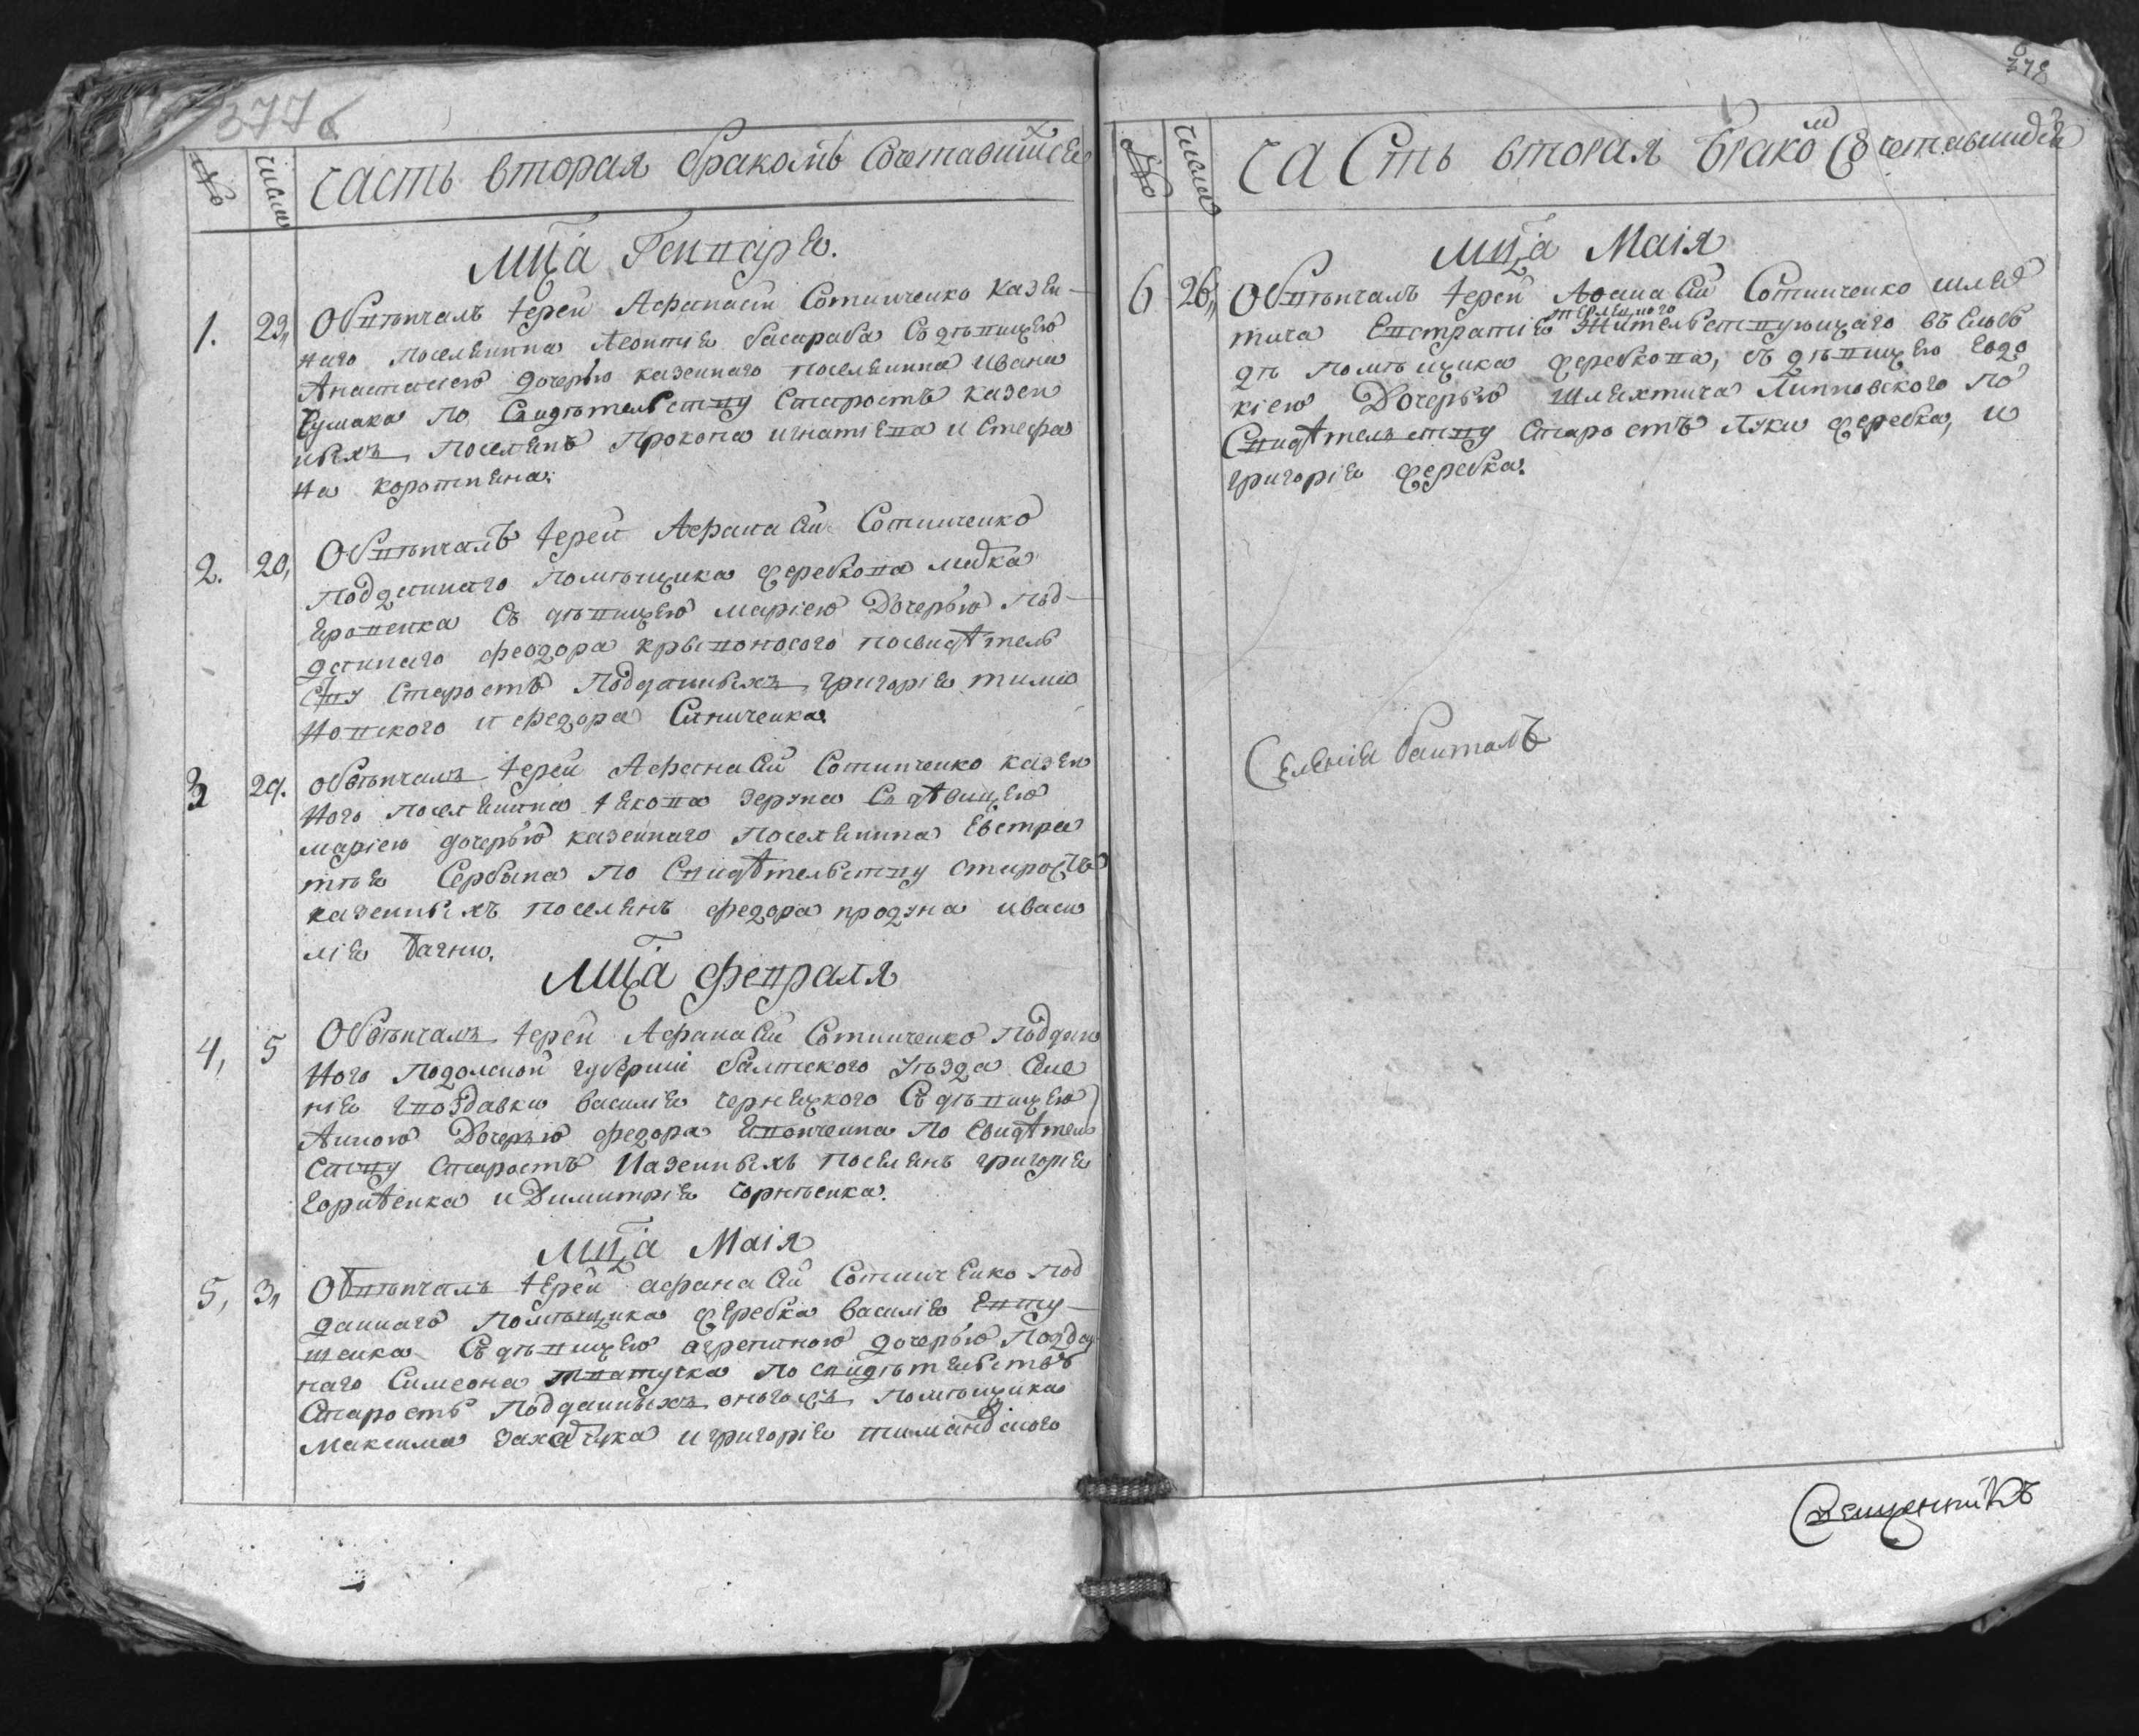 377б
№ числа Часть вторая бракомъ Сочетавшихся
Мца Генваря.
1. 23, Обвѣнчалъ Іерей Афанасій Сотниченко Казен-
наго поселянина Леонтія басараба Съ дѣвицею
Анастасіею дочерью казеннаго поселянина Ивана
Чумака по Свидѣтельству Старостъ казен
ныхъ Поселянъ Прокопа игнатіева и Стефа
на коротпяна.
2. 20, Обвѣнчалъ Іерей Афанасій Сотниченко
подданнаго помѣщика Феребкова
съ дѣвицею маріею Дочерью Под-
даннаго феодора кривоносого посвидѣтель
ству Старостъ Подданныхъ григорія тима
новского и федора Синиченка.
3 29. обвѣнчалъ Іерей Афанасій Сотниченко казен
ного поселянина Іякова зерука Съ дѣвицею
маріею дочерью казеннаго Поселянина Евстра
тія Сербина по Свидѣтельству старостъ
казенныхъ поселянъ федора продуна иваси
лія бачии.
Мца Февраля
4, 5 Обвѣнчалъ Іерей Афанасій Сотниченко поддан
ного подолской губерніи балтского уѣзда Селе
нія гвоздавки василія чернецкого Съ дѣвицею
Анною Дочерью федора по Свидѣтель
ству Старостъ Казенныхъ поселянъ григорія
и Димитрія
Мца Маія
5, 3, Обвѣнчалъ Іерей афанасій Сотниченко под
даннаго помѣщика Феребка василія Евту-
шенка Съ дѣвицею агрепиною дочерью Подда
наго Симеона по свидѣтельству
Старостъ подданныхъ оногожъ помѣщика
Максима и григорія тимановского
378
№ числа Часть вторая бракомъ Сочетавшихся
Мца Маія
6 26, Обвѣнчалъ Іерей Афанасій Сотниченко шлях
тича Евстратія Жительствующаго въ Слоб
дѣ помѣщика Феребкова, съ дѣвицею Евдо
кіею Дочерью шляхтича Липповского По
Свидѣтельству Старостъ Луки Феребка, и
григорія Феребка.
Селенія балталъ
Священникъ